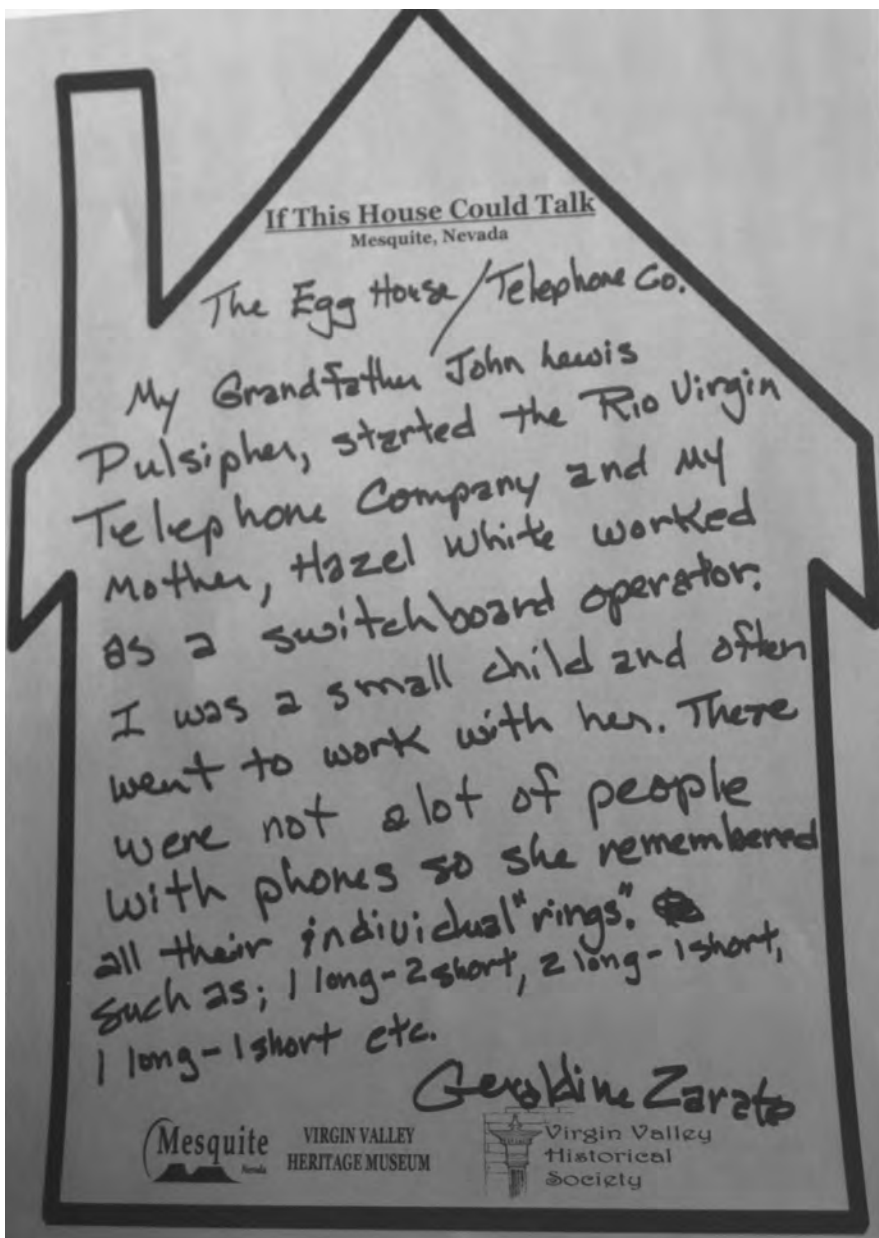 If This House Could Talk
Mesquite, Nevada
The Egg House/Telephone Co.
My Grandfather John Lewis
Pulsipher, started the Rio Virgin
Telephone Company and My
Mother, Hazel White worked
as a switchboard operator.
I was a small child and often
went to work with her. There
were not alot of people
with phones so she remembered
all their individual "rings".
such as; 1 long-2 short, 2 long-1 short,
1 long-1 short etc.
Geraldine Zarate
Mesquite
Nevada
VIRGIN VALLEY
HERITAGE MUSEUM
Virgin Valley
Historical
Society